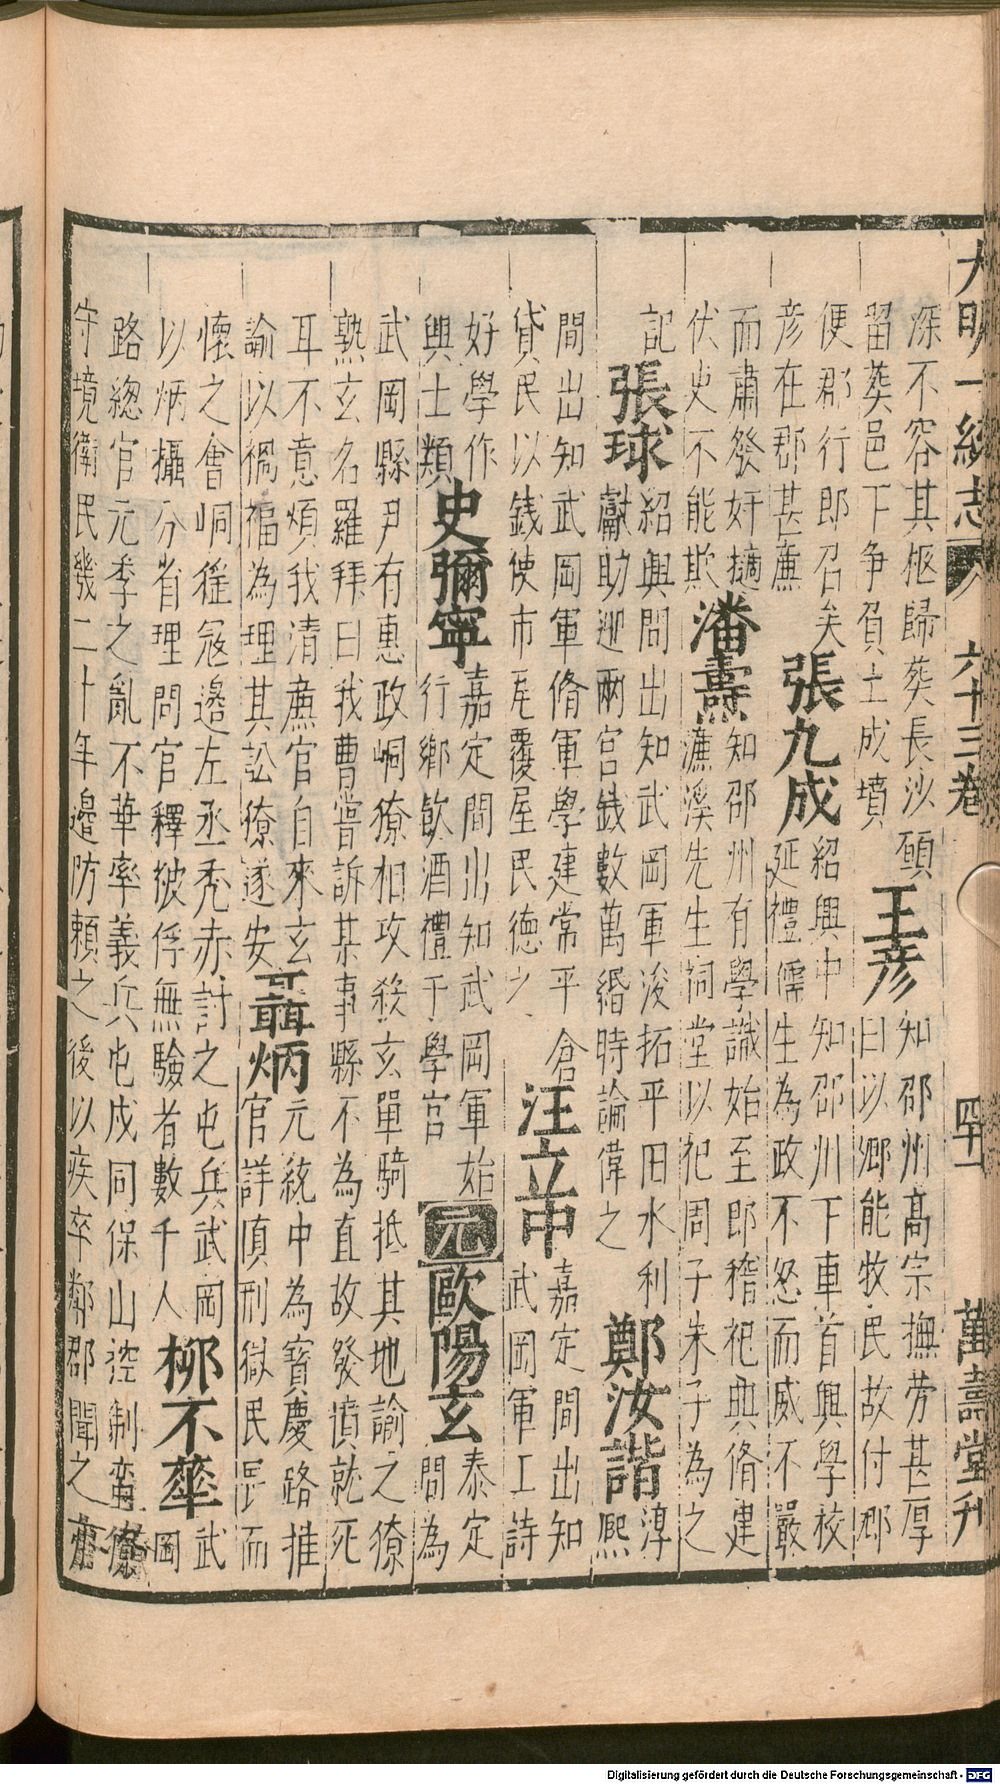 大明一統志 六十三卷 四十一 萬壽堂刋
深不容其柩歸葬長沙碩
留葬邑下爭負土成墳
王彥
知邵州高宗撫勞甚厚
曰以鄉能牧民故付郡
便郡行即召矣
彥在郡甚廉
張九成
紹興中知邵州下車首興學校
延禮儒生為政不怒而威不嚴
而肅發奸擿
伏吏不能欺
潘燾
知邵州有學識始至即稽祀典脩建
濂溪先生祠堂以祀周子朱子為之
記
張球
紹興間出知武岡軍浚拓平田水利
獻助迎兩宮錢數萬緡時論偉之
鄭汝諧
淳
熙
間出知武岡軍脩軍學建常平倉
貸民以錢使市瓦覆屋民德之
汪立中
嘉定間出知
武岡軍工詩
好學作
興士類
史彌寧
嘉定間出知武岡軍始
行鄉飲酒禮于學宮
元
歐陽玄
泰定
間為
武岡縣尹有惠政峒獠相攻殺玄單騎抵其地諭之獠
熟玄名羅拜曰我曹嘗訴某事縣不為直故發憤就死
耳不意煩我清廉官自來玄
諭以禍福為理其訟獠遂安
聶炳
元統中為寶慶路推
官詳慎刑獄民長而
懷之會峒徭冦邊左丞禿赤討之屯兵武岡
以炳攝分省理問官釋彼俘無驗者數千人
柳不華
武
岡
路總官元季之亂不華率義兵屯戍同保山控制蠻獠
守境衛民幾二十年邊防賴之後以疾卒鄰郡聞之
Digitalisierung gefördert durch die Deutsche Forschungsgemeinschaft - DFG